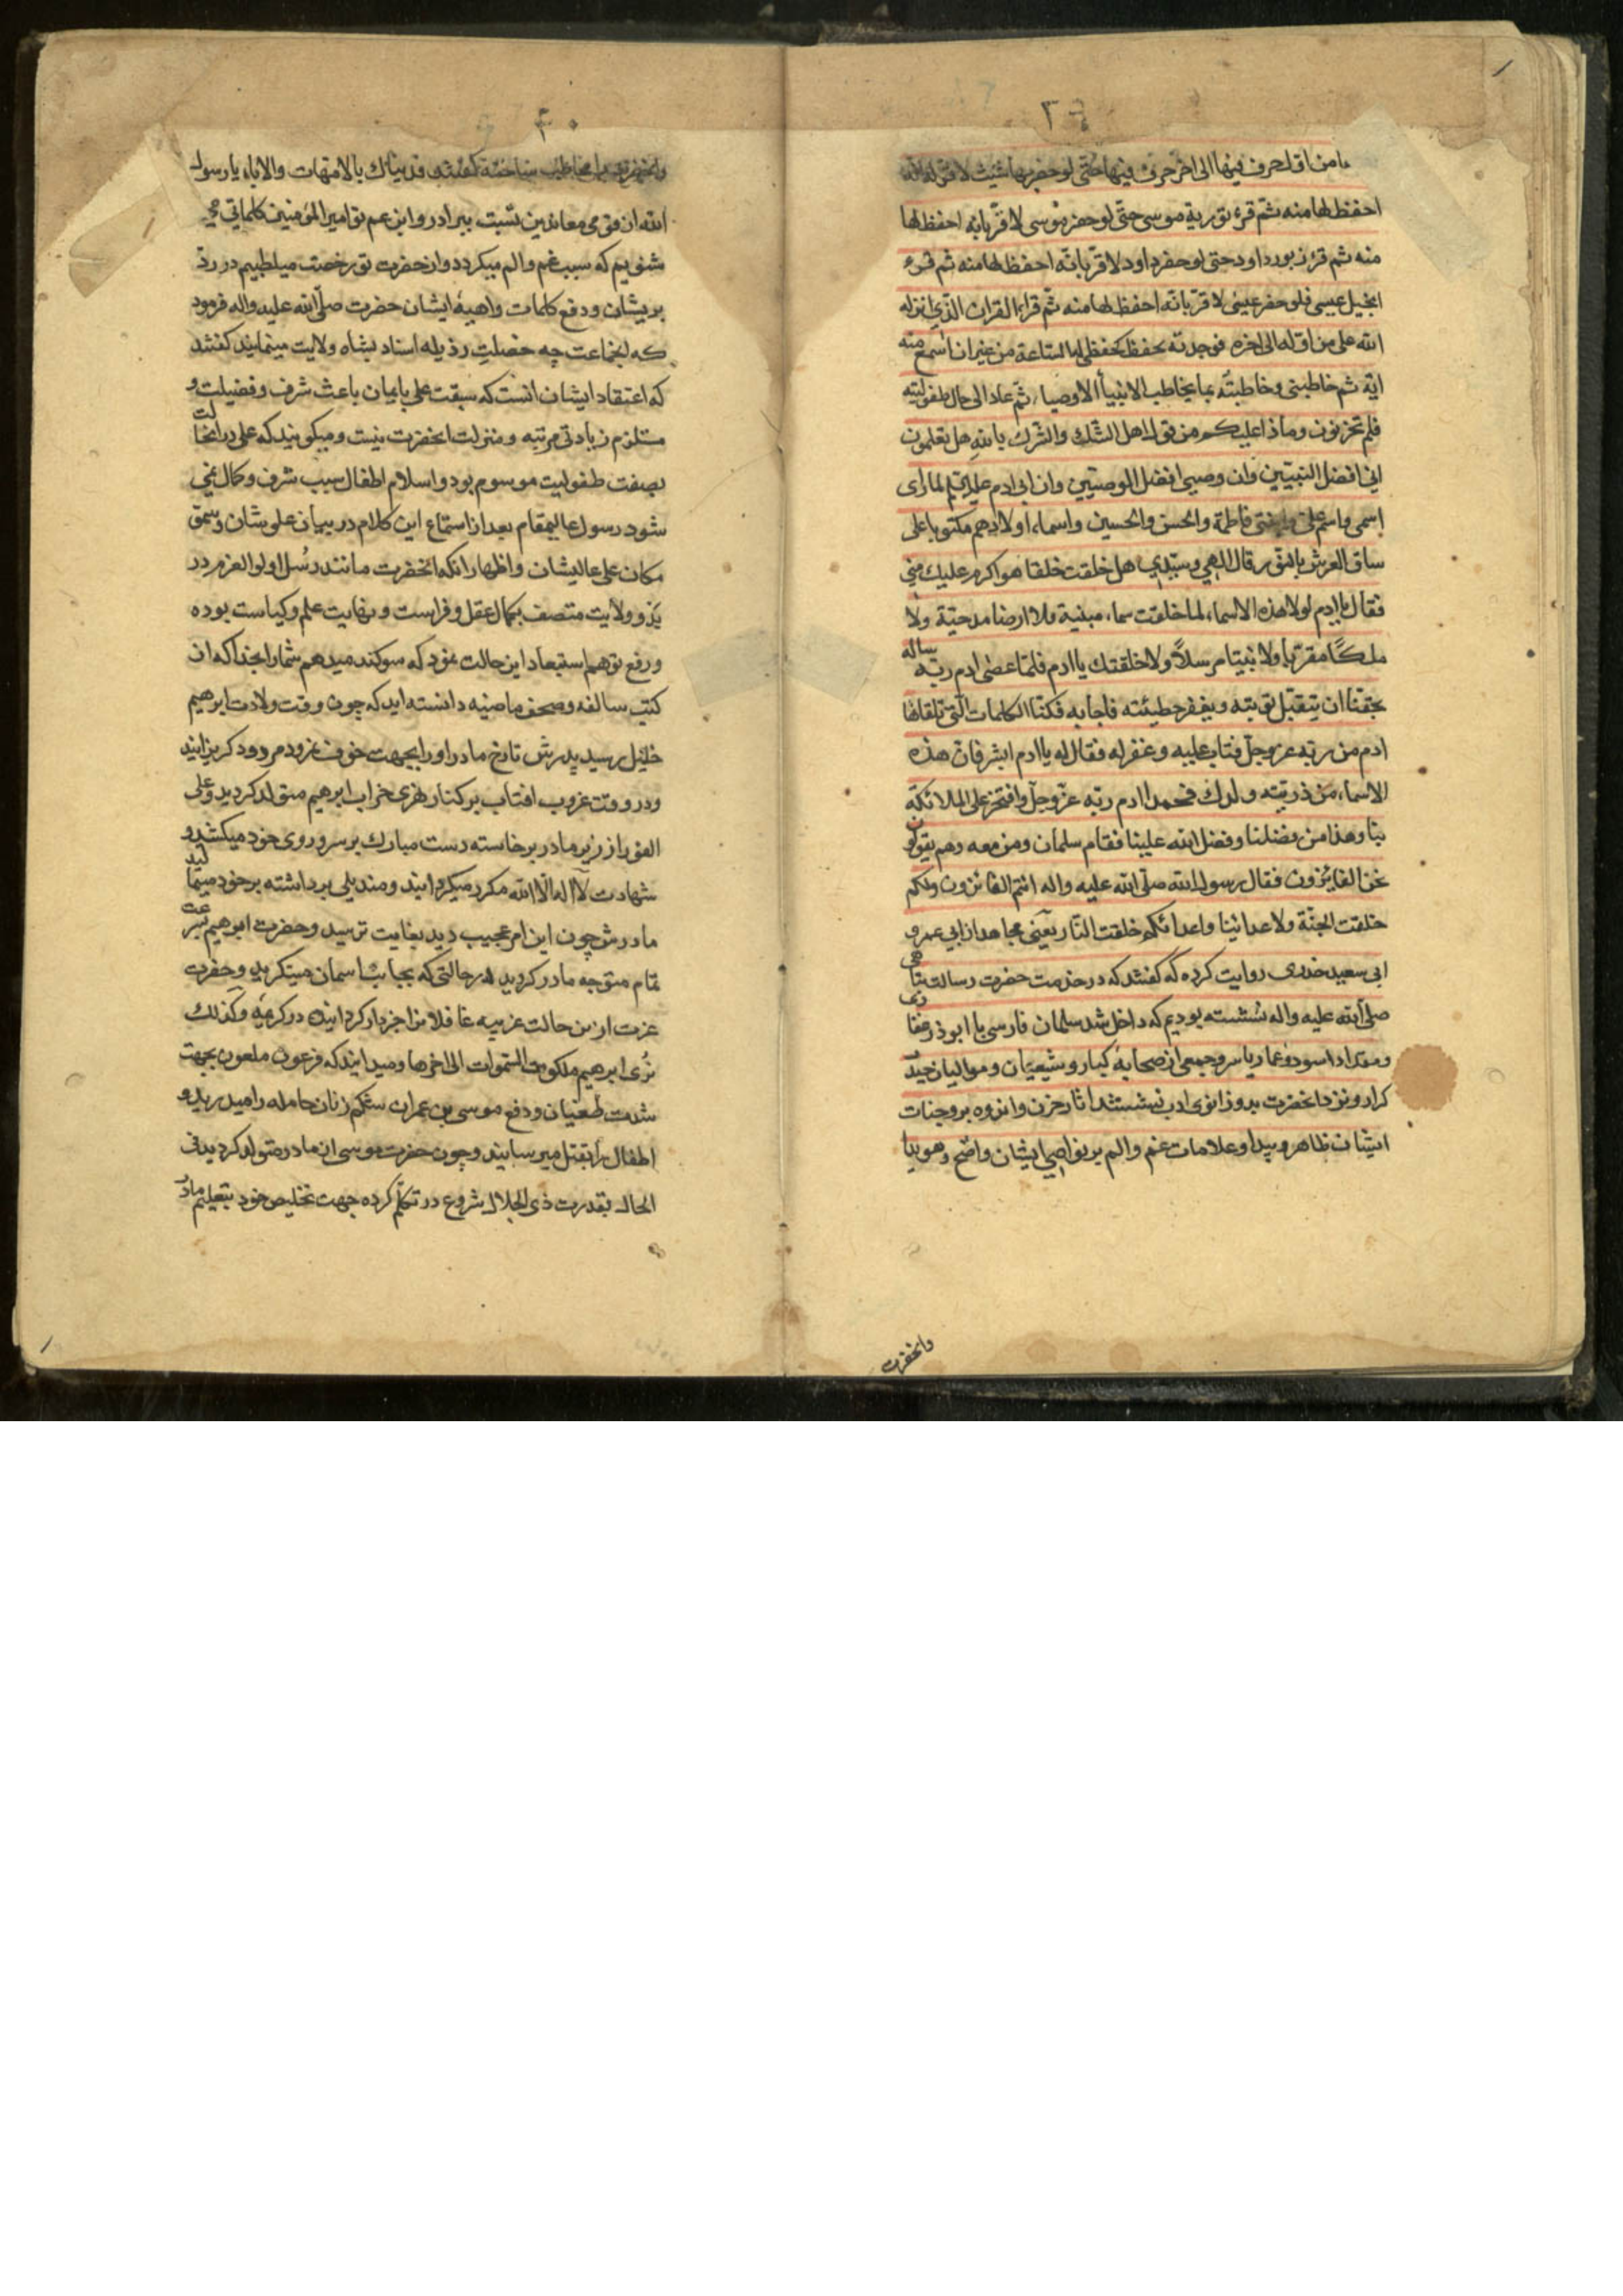 ۳۹
ما من اول حرف فیها الی اخر حرف فیها حتی لو حضر بها شیث لاقر له انه
احفظ لها منه ثم قرء توریة موسی حتی لو حضر موسی لاقر بانه احفظ لها
منه ثم قرء زبور داود حتی لو حضر داود لاقر بانه احفظ لها منه ثم قرء
انجیل عیسی فلو حضر عیسی لاقر بانه احفظ لها منه ثم قراء القران الذی انزله
الله علی من اوله الی اخره فوجدته یحفظ کحفظی له الساعة من غیر ان اسمع منه
ایة ثم خاطبنی وخاطبته بما یخاطب الانبیأ الاوصیا، ثم عاد الی حال طفولیته
فلم تحزنون وماذا علیکم من قول اهل الشک والشرک بالله هل تعلمون
انی افضل النبیین وان وصیی افضل الوصیین وان ابی ادم علیه لما رای
اسمی واسم علی وابنتی فاطمة والحسن والحسین واسماء اولادهم مکتوبا علی
ساق العرش بالنور قال الهی وسیدی هل خلقت خلقا هو اکرم علیک منی
فقال یا ادم لولا هذه الاسماء لما خلقت سماء مبنیة ولا ارضا مدحیة ولا
ملکًا مقربا ولا نبیا مرسلاً ولا خلقتک یا ادم فلما عصی ادم ربه ساله
بحقنا ان یتقبل توبته ویغفر خطیئته فاجابه فکنا الکلمات التی تلقاها
ادم من ربه عز وجل فتاب علیه وغفر له فقال له یا ادم ابشر فان هذه
الاسماء من ذریته ولدک فحمد ادم ربه عز وجل وافتخر علی الملائکة
بنا وهذا من فضلنا وفضل الله علینا فقام سلمان ومن معه وهم یقولون
نحن الفایزون فقال رسول الله صلی الله علیه واله انتم الفائزون ولکم
خلقت الجنة ولاعدائنا واعدائکم خلقت النار یعنی مجاهد از ابی عمرو
ابی سعید خدری روایت کرده که گفتند که در خدمت حضرت رسالت پناهی
صلی الله علیه واله نشسته بودیم که داخل شد سلمان فارسی با ابوذر غفاری
ومقداد اسود وعمار یاسر وجمعی از صحابهٔ کبار و شیعیان وموالیان حیدر
کرار ونزد انحضرت بدو زانوی ادب نشستند اثار حزن واندوه بر وجنات
ایشان ظاهر وپیدا وعلامات غم والم بر نواصی ایشان واضح وهویدا
وانحضرت
۴۰
وانحضرت را مخاطب ساخته گفتند فدیناک بالامهات والاباء یا رسول
الله از قومی معاندین نسبت ببرادر وابن عم تو امیر المؤمنین کلماتی می
شنویم که سبب غم والم میگردد واز حضرت تو رخصت میطلبیم در رد
بر ایشان ودفع کلمات واهیهٔ ایشان حضرت صلی الله علیه واله فرمود
که انجماعت چه خصلت رذیله اسناد بشاه ولایت مینمایند گفتند
که اعتقاد ایشان انست که سبقت علی بایمان باعث شرف وفضیلت و
مستلزم زیادتی مرتبه ومنزلت انحضرت نیست ومیگویند که علی در انحالت
بصفت طفولیت موسوم بود و اسلام اطفال سبب شرف وکمال نمی
شود رسول عالیمقام بعد از استماع این کلام در بیان علو شان وسمو
مکان علی عالیشان واظهار انکه انحضرت مانند رُسل اولوالعزم در
بدو ولایت متصف بکمال عقل وفراست ونهایت علم وکیاست بوده
ورفع توهم استبعاد این حالت نمود که سوکند میدهم شما را بخدا که از
کتب سالفه وصحف ماضیه دانسته اید که چون وقت ولادت ابرهیم
خلیل رسید پدرش تارخ مادر او را بجهت خوف نمرود مردود کریزانید
ودر وقت غروب افتاب بر کنار نهری خراب ابرهیم متولد کردید وعلی
الفور از زیر مادر برخاسته دست مبارک بر سر وروی خود میکشید و
شهادت لا اله الا الله مکرر میکردانید ومندیلی برداشته بر خود میمالید
مادرش چون این امر عجیب دید بغایت ترسید وحضرت ابرهیم بسرعت
تمام متوجه مادر کردید در حالتی که بجانب اسمان مینکرید وحضرت
عزت از این حالت غریبه غافلانرا خبردار کردانیده در کریمهٔ وکذلک
نُری ابرهیم ملکوت السموات الی اخرها ومیدانید که فرعون ملعون بجهت
شدت طغیان ودفع موسی بن عمران شکم زنان حامله را میدرید و
اطفال را بقتل میرسانید وچون حضرت موسی از مادر متولد کردید فی
الحال بقدرت ذی الجلال شروع در تکلم کرده جهت تخلیص خود بتعلیم مادر